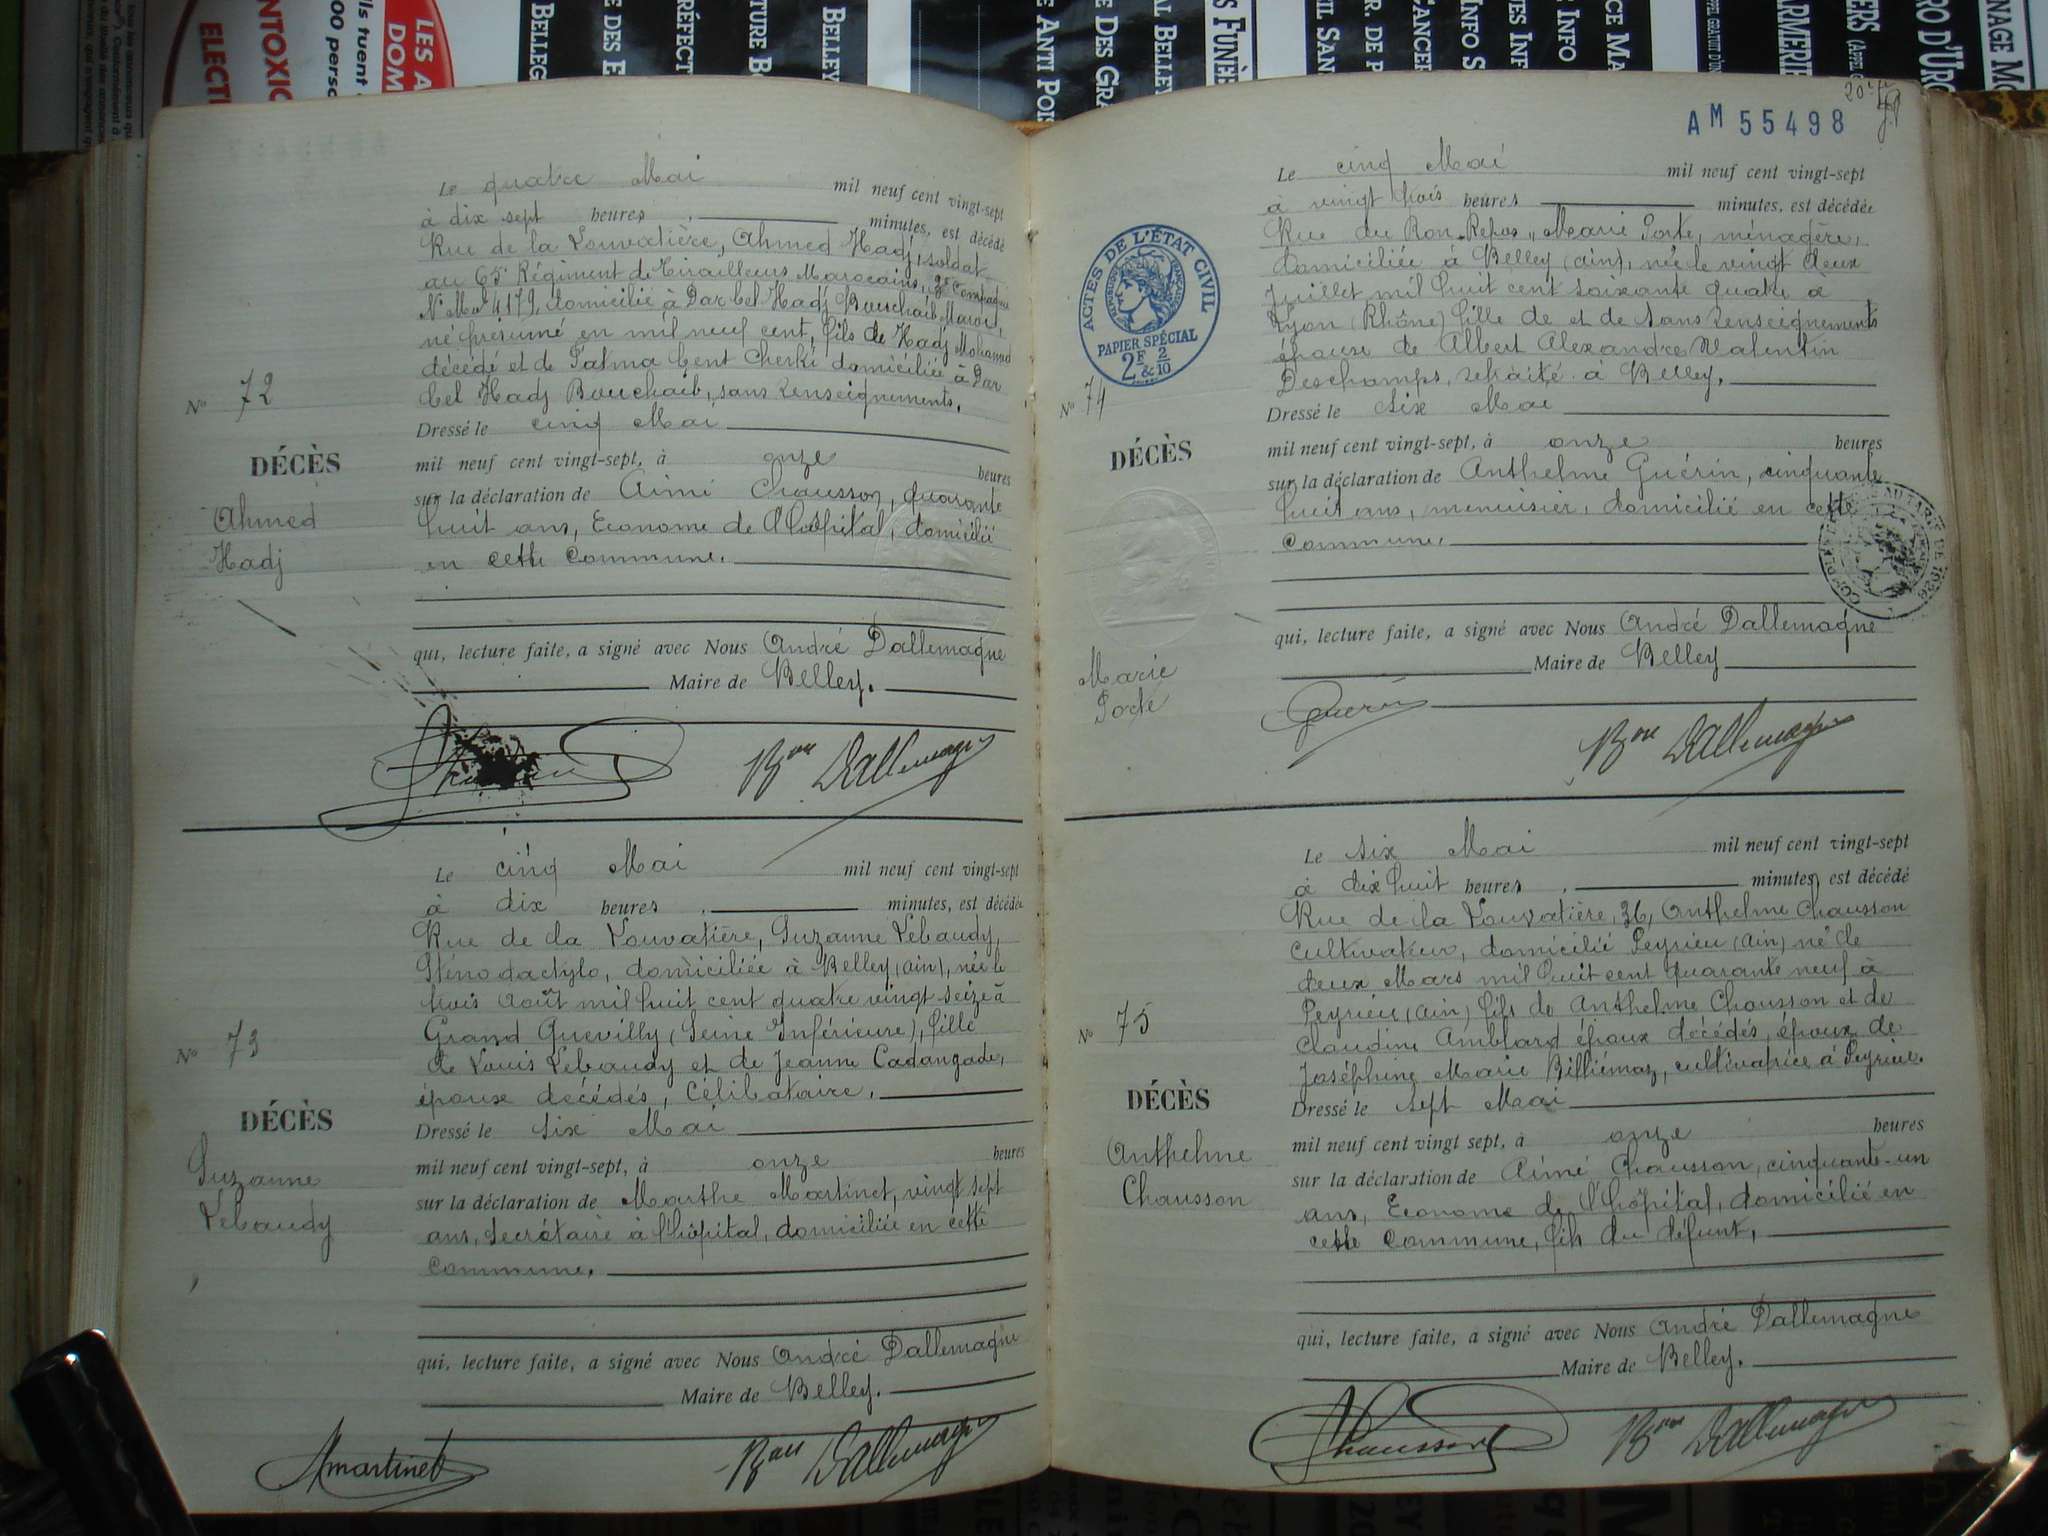 Le quatre Mai mil neuf cent vingt-sept
à dix sept heures , minutes, est décédé
Rue de la Louvatière, Ahmed Hadj, soldat
au 65e Régiment de Tirailleurs Marocains, 2e Compagnie
N° Mle 4179, domicilié à Dar bel Hadj Bouchaib Maroc,
né présumé en mil neuf cent, fils de Hadj Mohamed
décédé et de Fatma bent Cherki domiciliée à Dar
bel Hadj Bouchaib, sans renseignements.
Dressé le cinq Mai
mil neuf cent vingt-sept, à onze heures
sur la déclaration de Aimé Chausson, quarante
huit ans, Econome de l'hôpital, domicilié
en cette commune.
qui, lecture faite, a signé avec Nous André Dallemagne
Maire de Belley.
Bon Dallemagne
N° 72
DÉCÈS
Ahmed
Hadj
Le cinq Mai mil neuf cent vingt-sept
à dix heures , minutes, est décédée
Rue de la Louvatière, Suzanne Lebaudy,
Sténo dactylo, domiciliée à Belley (Ain), née le
trois Août mil huit cent quatre vingt seize à
Grand Quevilly (Seine Inférieure), fille
de Louis Lebaudy et de Jeanne Cadangade,
époux décédés, Célibataire.
Dressé le six Mai
mil neuf cent vingt-sept, à onze heures
sur la déclaration de Marthe Martinet, vingt sept
ans, Secrétaire à l'hôpital, domiciliée en cette
commune.
qui, lecture faite, a signé avec Nous André Dallemagne
Maire de Belley.
Martinet Bon Dallemagne
N° 73
DÉCÈS
Suzanne
Lebaudy
AM 55498
Le cinq Mai mil neuf cent vingt-sept
à vingt trois heures minutes, est décédée
Rue du Bon Repos, Marie Porte, ménagère,
domiciliée à Belley (Ain), née le vingt deux
Juillet mil huit cent soixante quatre à
Lyon (Rhône) fille de et de sans renseignements
épouse de Albert Alexandre Valentin
Deschamps, retraité à Belley.
Dressé le six Mai
mil neuf cent vingt-sept, à onze heures
sur la déclaration de Anthelme Guérin, cinquante
huit ans, menuisier, domicilié en cette
commune.
qui, lecture faite, a signé avec Nous André Dallemagne
Maire de Belley
Guérin Bon Dallemagne
ACTES DE L'ÉTAT CIVIL
PAPIER SPÉCIAL
2F & 2/10
N° 74
DÉCÈS
Marie
Porte
Le six Mai mil neuf cent vingt-sept
à dix huit heures , minutes, est décédé
Rue de la Louvatière, 36, Anthelme Chausson
cultivateur, domicilié Peyrieu (Ain) né le
deux Mars mil huit cent quarante neuf à
Peyrieu (Ain) fils de Anthelme Chausson et de
Claudine Amblard époux décédés, époux de
Joséphine Marie Billiémaz, cultivatrice à Peyrieu.
Dressé le sept Mai
mil neuf cent vingt sept, à onze heures
sur la déclaration de Aimé Chausson, cinquante-un
ans, Econome de l'hôpital, domicilié en
cette commune, fils du défunt.
qui, lecture faite, a signé avec Nous André Dallemagne
Maire de Belley.
Chausson Bon Dallemagne
N° 75
DÉCÈS
Anthelme
Chausson